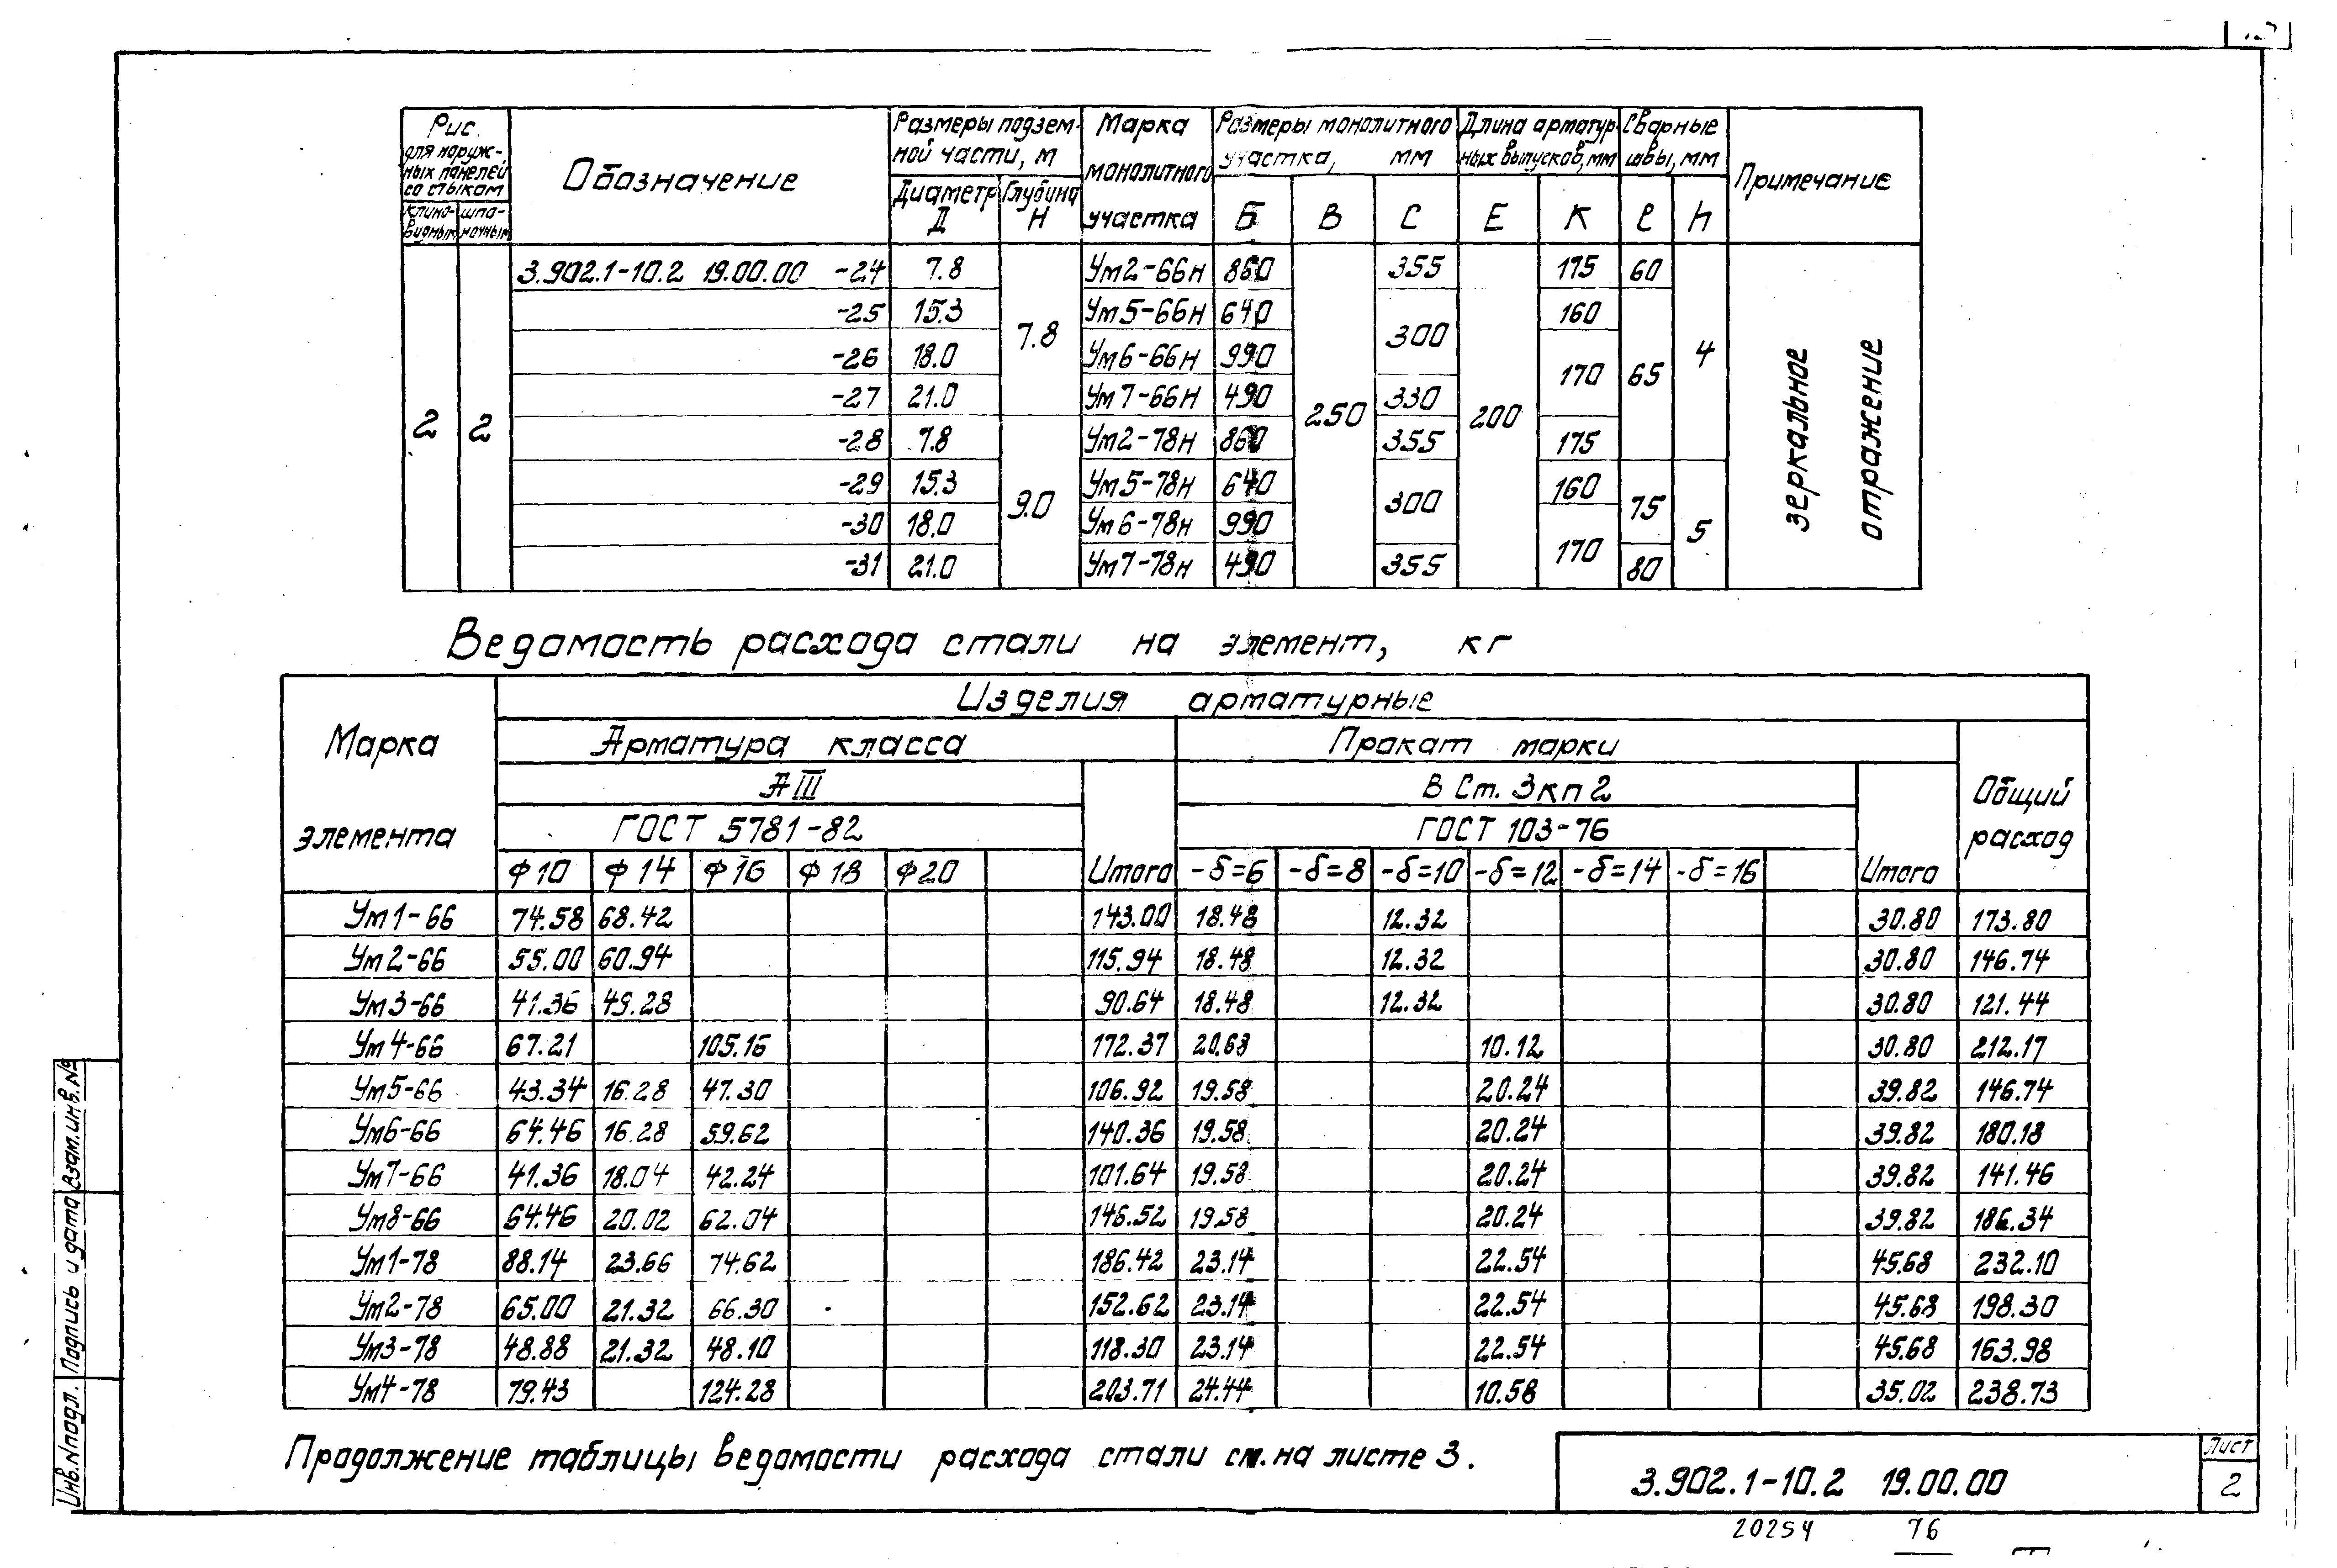 Рис. для наруж-ных панелей со стыком | Обозначение | Размеры подзем-ной части, м | Марка монолитного участка | Размеры монолитного участка, мм | Длина арматур-ных выпусков, мм | Сварные швы, мм | Примечание
клино-видным | шпо-ночным | Диаметр Д | Глубина Н | Б | В | С | Е | К | ℓ | h
2 | 2 | 3.902.1-10.2 19.00.00 -24 | 7.8 | 7.8 | Ум2-66н | 860 | 250 | 355 | 200 | 175 | 60 | 4 | зеркальное отражение
-25 | 15.3 | Ум5-66н | 640 | 300 | 160 | 65
-26 | 18.0 | Ум6-66н | 990 | 170
-27 | 21.0 | Ум7-66н | 490 | 330
-28 | 7.8 | 9.0 | Ум2-78н | 860 | 355 | 175
-29 | 15.3 | Ум5-78н | 640 | 300 | 160 | 75 | 5
-30 | 18.0 | Ум6-78н | 990 | 170
-31 | 21.0 | Ум7-78н | 490 | 355 | 80
Ведомость расхода стали на элемент, кг
Марка элемента | Изделия арматурные
Арматура класса | Прокат марки | Общий расход
АIII | Итого | ВСт.3кп2 | Итого
ГОСТ 5781-82 | ГОСТ 103-76
Ф10 | Ф14 | Ф16 | Ф18 | Ф20 | -δ=6 | -δ=8 | -δ=10 | -δ=12 | -δ=14 | -δ=16
Ум1-66 | 74.58 | 68.42 | 143.00 | 18.48 | 12.32 | 30.80 | 173.80
Ум2-66 | 55.00 | 60.94 | 115.94 | 18.48 | 12.32 | 30.80 | 146.74
Ум3-66 | 41.36 | 49.28 | 90.64 | 18.48 | 12.32 | 30.80 | 121.44
Ум4-66 | 67.21 | 105.16 | 172.37 | 20.68 | 10.12 | 30.80 | 212.17
Ум5-66 | 43.34 | 16.28 | 47.30 | 106.92 | 19.58 | 20.24 | 39.82 | 146.74
Ум6-66 | 64.46 | 16.28 | 59.62 | 140.36 | 19.58 | 20.24 | 39.82 | 180.18
Ум7-66 | 41.36 | 18.04 | 42.24 | 101.64 | 19.58 | 20.24 | 39.82 | 141.46
Ум8-66 | 64.46 | 20.02 | 62.04 | 146.52 | 19.58 | 20.24 | 39.82 | 186.34
Ум1-78 | 88.14 | 23.66 | 74.62 | 186.42 | 23.14 | 22.54 | 45.68 | 232.10
Ум2-78 | 65.00 | 21.32 | 66.30 | 152.62 | 23.14 | 22.54 | 45.68 | 198.30
Ум3-78 | 48.88 | 21.32 | 48.10 | 118.30 | 23.14 | 22.54 | 45.68 | 163.98
Ум4-78 | 79.43 | 124.28 | 203.71 | 24.44 | 10.58 | 35.02 | 238.73
Продолжение таблицы ведомости расхода стали см. на листе 3.
3.902.1-10.2 19.00.00
Лист
2
20254 76
Инв.№подл. Подпись и дата Взам.инв.№